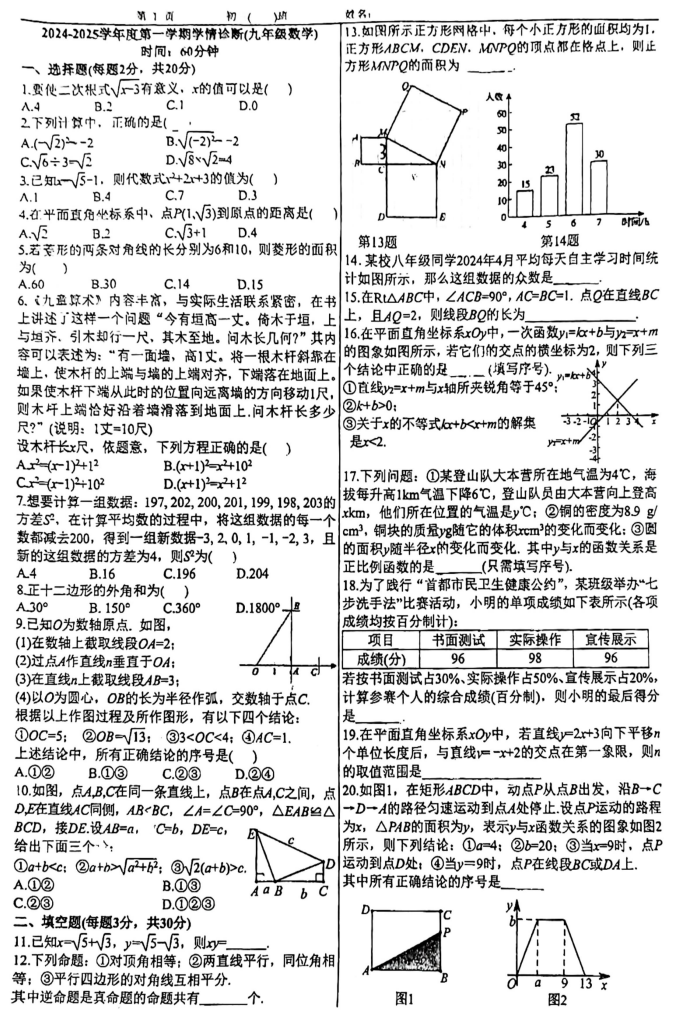 第 1 页 初 ( )班 姓名:
2024-2025学年度第一学期学情诊断(九年级数学)
时间：60分钟
一、选择题(每题2分，共20分)
1.要使二次根式√x-3有意义，x的值可以是( )
A.4 B.2 C.1 D.0
2.下列计算中，正确的是( )
A.(-√2)²=-2 B.√(-2)²=-2
C.√6÷3=√2 D.√8×√2=4
3.已知x=√5-1，则代数式x²+2x+3的值为( )
A.1 B.4 C.7 D.3
4.在平面直角坐标系中、点P(1,√3)到原点的距离是( )
A.√2 B.2 C.√3+1 D.4
5.若菱形的两条对角线的长分别为6和10，则菱形的面积
为( )
A.60 B.30 C.14 D.15
6.《九章算术》内容丰富，与实际生活联系紧密，在书
上讲述了这样一个问题“今有垣高一丈。倚木于垣，上
与垣齐．引木却行一尺，其木至地。问木长几何?”其内
容可以表述为：“有一面墙，高1丈。将一根木杆斜靠在
墙上，使木杆的上端与墙的上端对齐，下端落在地面上。
如果使木杆下端从此时的位置向远离墙的方向移动1尺，
则木杆上端恰好沿着墙滑落到地面上.问木杆长多少
尺?”(说明：1丈=10尺)
设木杆长x尺，依题意，下列方程正确的是( )
A.x²=(x-1)²+1² B.(x+1)²=x²+10²
C.x²=(x-1)²+10² D.(x+1)²=x²+1²
7.想要计算一组数据：197, 202, 200, 201, 199, 198, 203的
方差S²，在计算平均数的过程中，将这组数据的每一个
数都减去200，得到一组新数据-3, 2, 0, 1, -1, -2, 3，且
新的这组数据的方差为4，则S²为( )
A.4 B.16 C.196 D.204
8.正十二边形的外角和为( )
A.30° B. 150° C.360° D.1800°
9.已知O为数轴原点．如图，
(1)在数轴上截取线段OA=2；
(2)过点A作直线n垂直于OA；
(3)在直线n上截取线段AB=3；
(4)以O为圆心，OB的长为半径作弧，交数轴于点C.
B
O 1 A C
根据以上作图过程及所作图形，有以下四个结论：
①OC=5； ②OB=√13； ③3<OC<4；④AC=1.
上述结论中，所有正确结论的序号是( )
A.①② B.①③ C.②③ D.②④
10.如图，点A,B,C在同一条直线上，点B在点A,C之间，点
D,E在直线AC同侧，AB<BC，∠A=∠C=90°，△EAB≌△
BCD，接DE.设AB=a， C=b，DE=c，
给出下面三个
①a+b<c；②a+b>√a²+b²；③√2(a+b)>c.
A.①② B.①③
C.②③ D.①②③
E c D A a B b C
二、填空题(每题3分，共30分)
11.已知x=√5+√3，y=√5-√3，则xy=______.
12.下列命题：①对顶角相等；②两直线平行，同位角相
等；③平行四边形的对角线互相平分.
其中逆命题是真命题的命题共有______个.
13.如图所示正方形网格中，每个小正方形的面积均为1，
正方形ABCM，CDEN，MNPQ的顶点都在格点上，则正
方形MNPQ的面积为 ______.
Q P A M 3 B C N D E
第13题
人数
60 50 40 30 20 10 0
15 23 52 30
4 5 6 7 时间/h
第14题
14. 某校八年级同学2024年4月平均每天自主学习时间统
计如图所示，那么这组数据的众数是______.
15.在Rt△ABC中，∠ACB=90°，AC=BC=1．点Q在直线BC
上，且AQ=2，则线段BQ的长为______.
16.在平面直角坐标系xOy中，一次函数y₁=kx+b与y₂=x+m
的图象如图所示，若它们的交点的横坐标为2，则下列三
个结论中正确的是______(填写序号).
①直线y₂=x+m与x轴所夹锐角等于45°；
②k+b>0；
③关于x的不等式kx+b<x+m的解集
是x<2.
y₁=kx+b y
y₂=x+m
-3 -2 -1 1 2 3 4 x
17.下列问题：①某登山队大本营所在地气温为4℃，海
拔每升高1km气温下降6℃，登山队员由大本营向上登高
xkm，他们所在位置的气温是y℃；②铜的密度为8.9 g/
cm³，铜块的质量yg随它的体积xcm³的变化而变化；③圆
的面积y随半径x的变化而变化．其中y与x的函数关系是
正比例函数的是______(只需填写序号).
18.为了践行“首都市民卫生健康公约”，某班级举办“七
步洗手法”比赛活动，小明的单项成绩如下表所示(各项
成绩均按百分制计)：
项目 书面测试 实际操作 宣传展示
成绩(分) 96 98 96
若按书面测试占30%、实际操作占50%、宣传展示占20%，
计算参赛个人的综合成绩(百分制)，则小明的最后得分
是______.
19.在平面直角坐标系xOy中，若直线y=2x+3向下平移n
个单位长度后，与直线y=-x+2的交点在第一象限，则n
的取值范围是______
20.如图1，在矩形ABCD中，动点P从点B出发，沿B→C
→D→A的路径匀速运动到点A处停止.设点P运动的路程
为x，△PAB的面积为y，表示y与x函数关系的图象如图2
所示，则下列结论：①a=4；②b=20；③当x=9时，点P
运动到点D处；④当y=9时，点P在线段BC或DA上.
其中所有正确结论的序号是______
D C P A B
图1
y b O a 9 13 x
图2